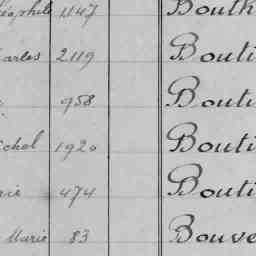 éophile 1147 Bouth
arles 2119 Bouti
958 Bouti
ochel 1920 Bouti
rie 474 Bouti
Marie 83 Bouve